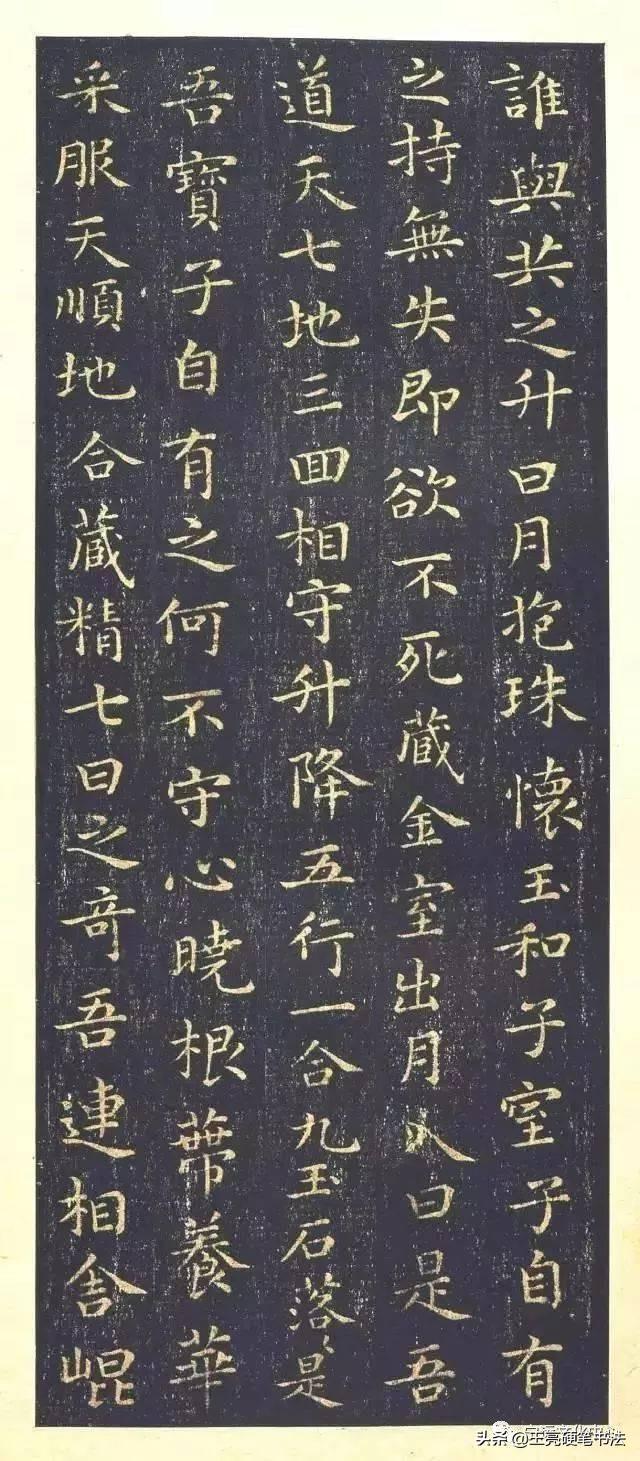 誰與共之升日月抱珠懷玉和子室子自有
之持無失即欲不死藏金室出月入日是吾
道天七地三回相守升降五行一合九玉石落〻是
吾寶子自有之何不守心曉根蔕養華
采服天順地合藏精七日之奇吾連相舍崐
头条@王亮硬笔书法